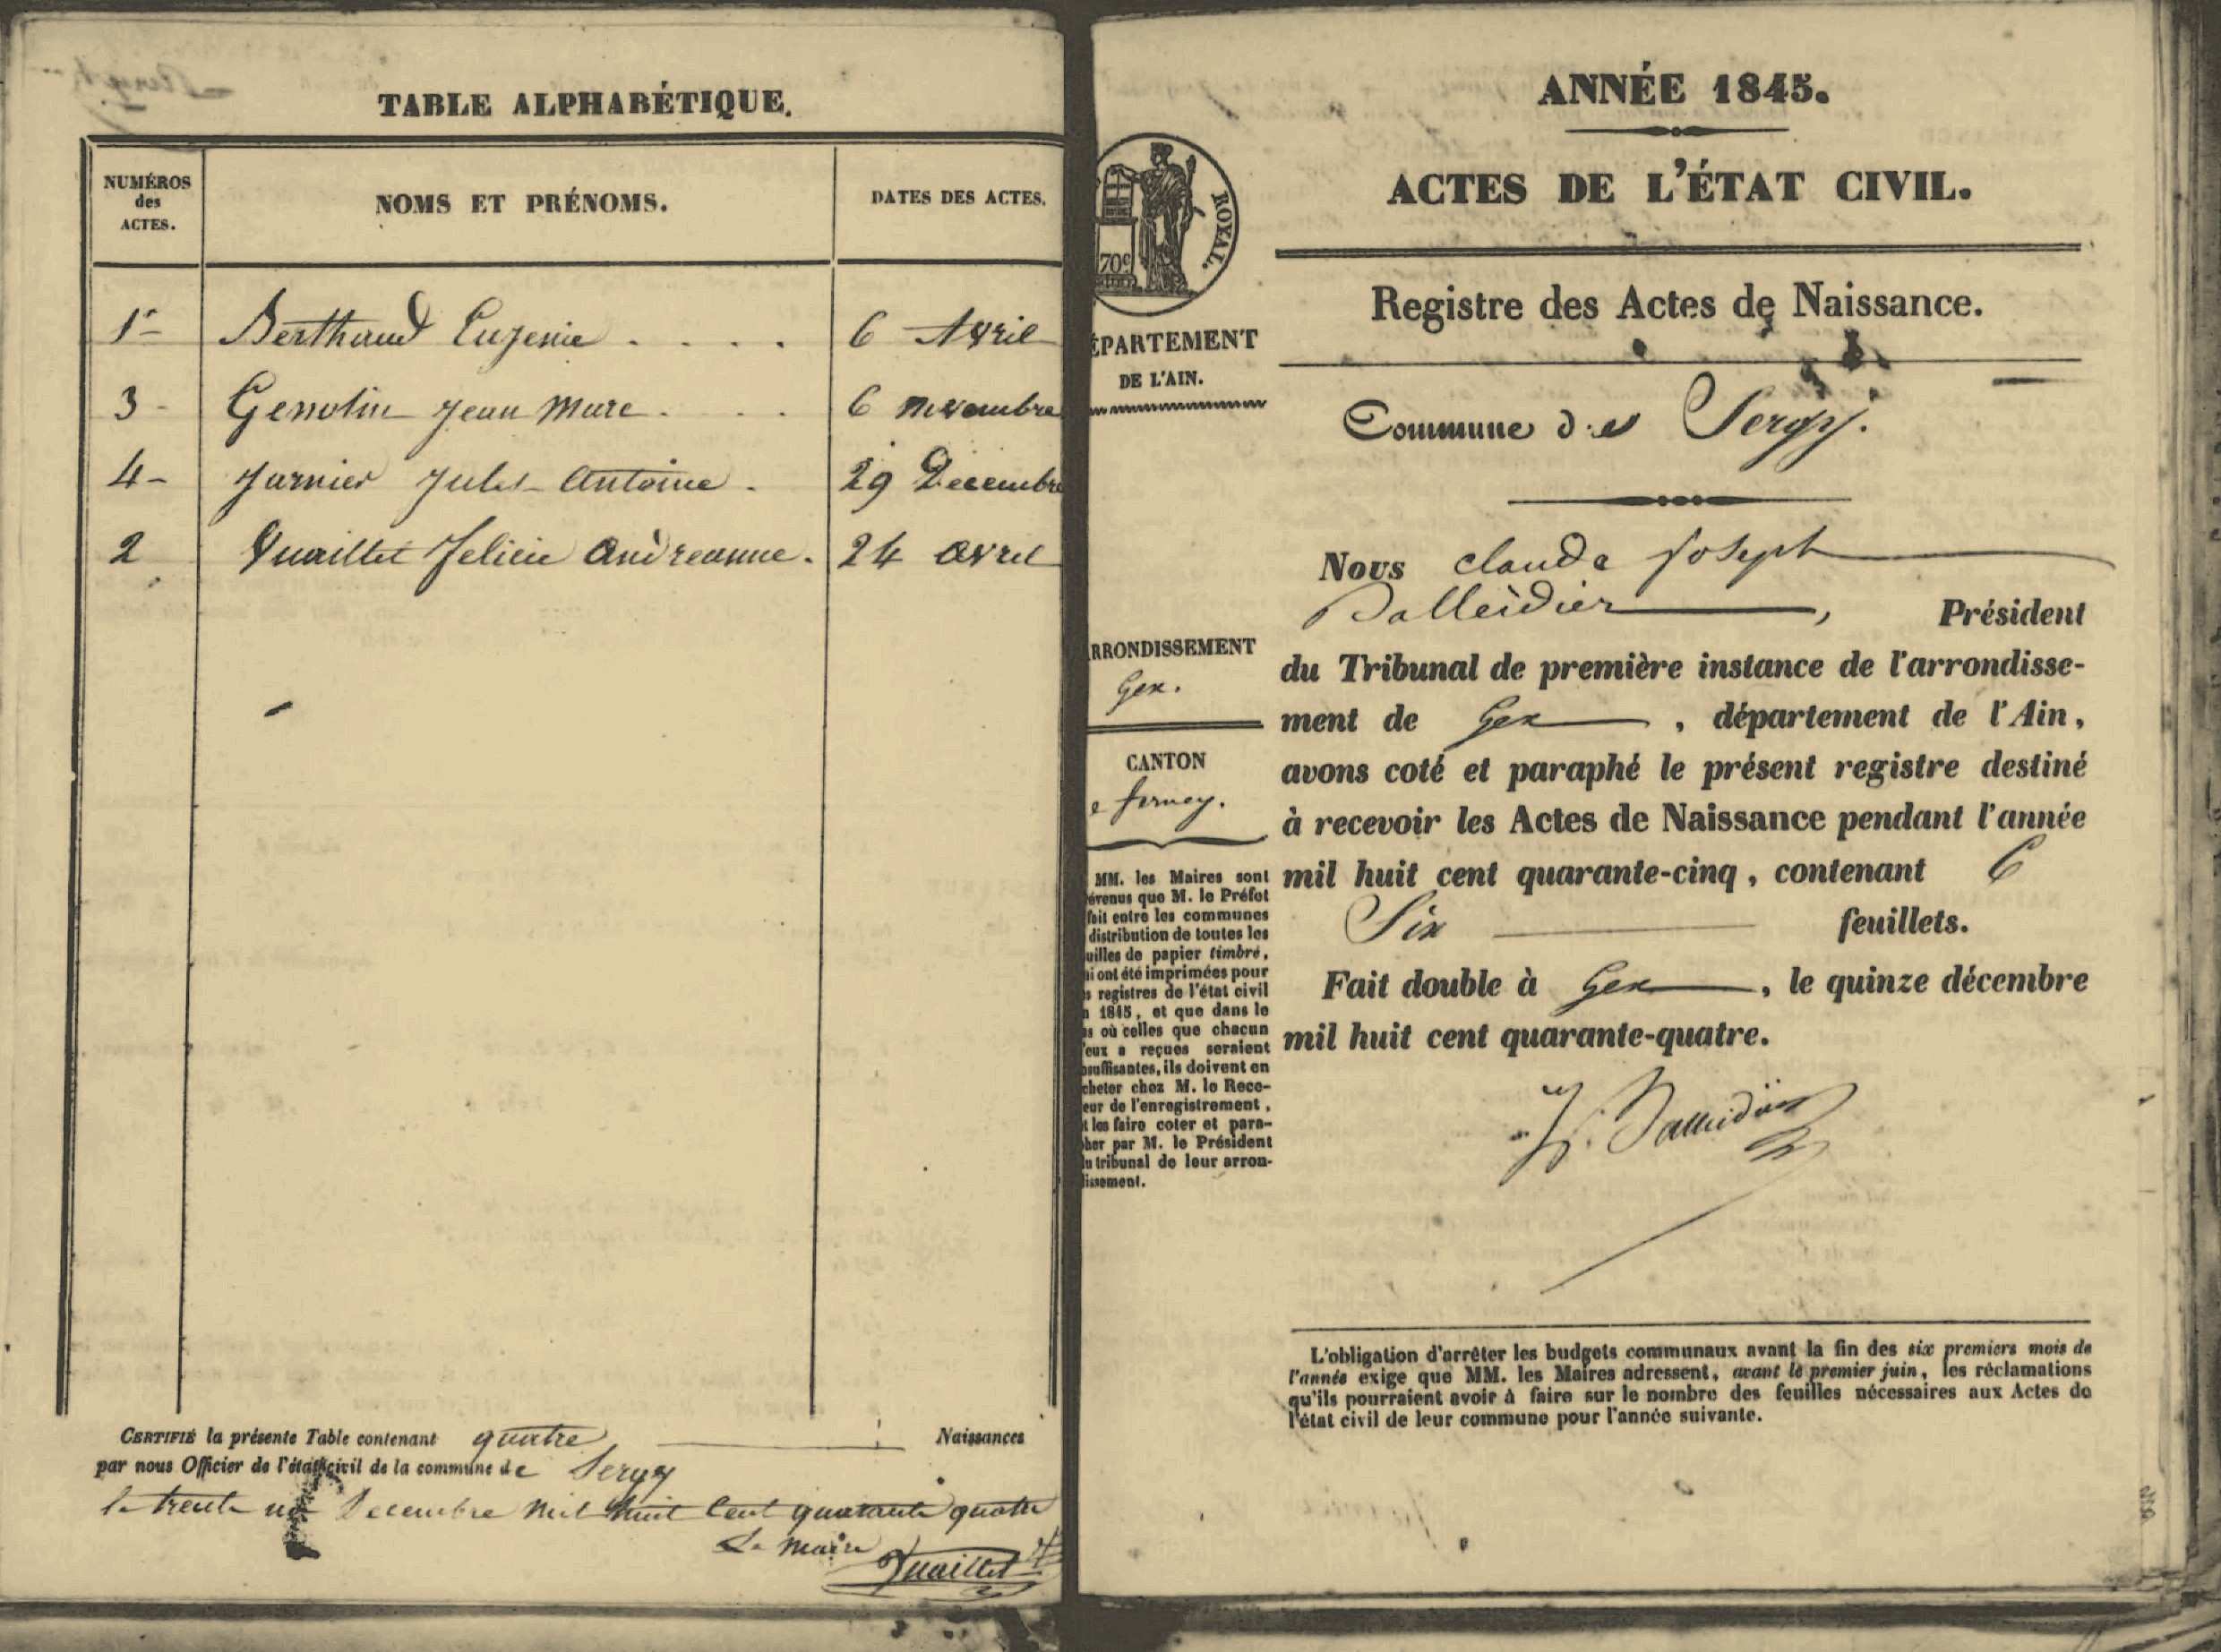 TABLE ALPHABÉTIQUE.
NUMÉROS
des
ACTES.
NOMS ET PRÉNOMS.
DATES DES ACTES.
1er Berthaud Eugenie . . . . 6 Avril
3 - Genolin Jean Marc . . . 6 novembre
4 - Jarnier Jules Antoine . 29 Decembre
2 Vuaillet Felicie Andreanne . 24 avril
CERTIFIÉ la présente Table contenant quatre Naissances
par nous Officier de l'état civil de la commune de Sergy
le trente un Decembre mil huit Cent quarante quatre
Le maire
Vuaillet
ANNÉE 1845.
ACTES DE L'ÉTAT CIVIL.
Registre des Actes de Naissance.
Commune de Sergy.
Nous claude joseph
Balleidier, Président
du Tribunal de première instance de l'arrondisse-
ment de Gex, département de l'Ain,
avons coté et paraphé le présent registre destiné
à recevoir les Actes de Naissance pendant l'année
mil huit cent quarante-cinq, contenant 6
Six feuillets.
Fait double à Gex, le quinze décembre
mil huit cent quarante-quatre.
J. Balleidier
L'obligation d'arrêter les budgets communaux avant la fin des six premiers mois de
l'année exige que MM. les Maires adressent, avant le premier juin, les réclamations
qu'ils pourraient avoir à faire sur le nombre des feuilles nécessaires aux Actes de
l'état civil de leur commune pour l'année suivante.
ROYAL.
70c
ÉPARTEMENT
DE L'AIN.
RRONDISSEMENT
Gex.
CANTON
e ferney.
MM. les Maires sont
évenus que M. le Préfet
fait entre les communes
distribution de toutes les
uilles de papier timbré,
ui ont été imprimées pour
s registres de l'état civil
n 1845, et que dans le
as où celles que chacun
'eux a reçues seraient
nsuffisantes, ils doivent en
cheter chez M. le Rece-
eur de l'enregistrement,
t les faire coter et para-
pher par M. le Président
du tribunal de leur arron-
dissement.